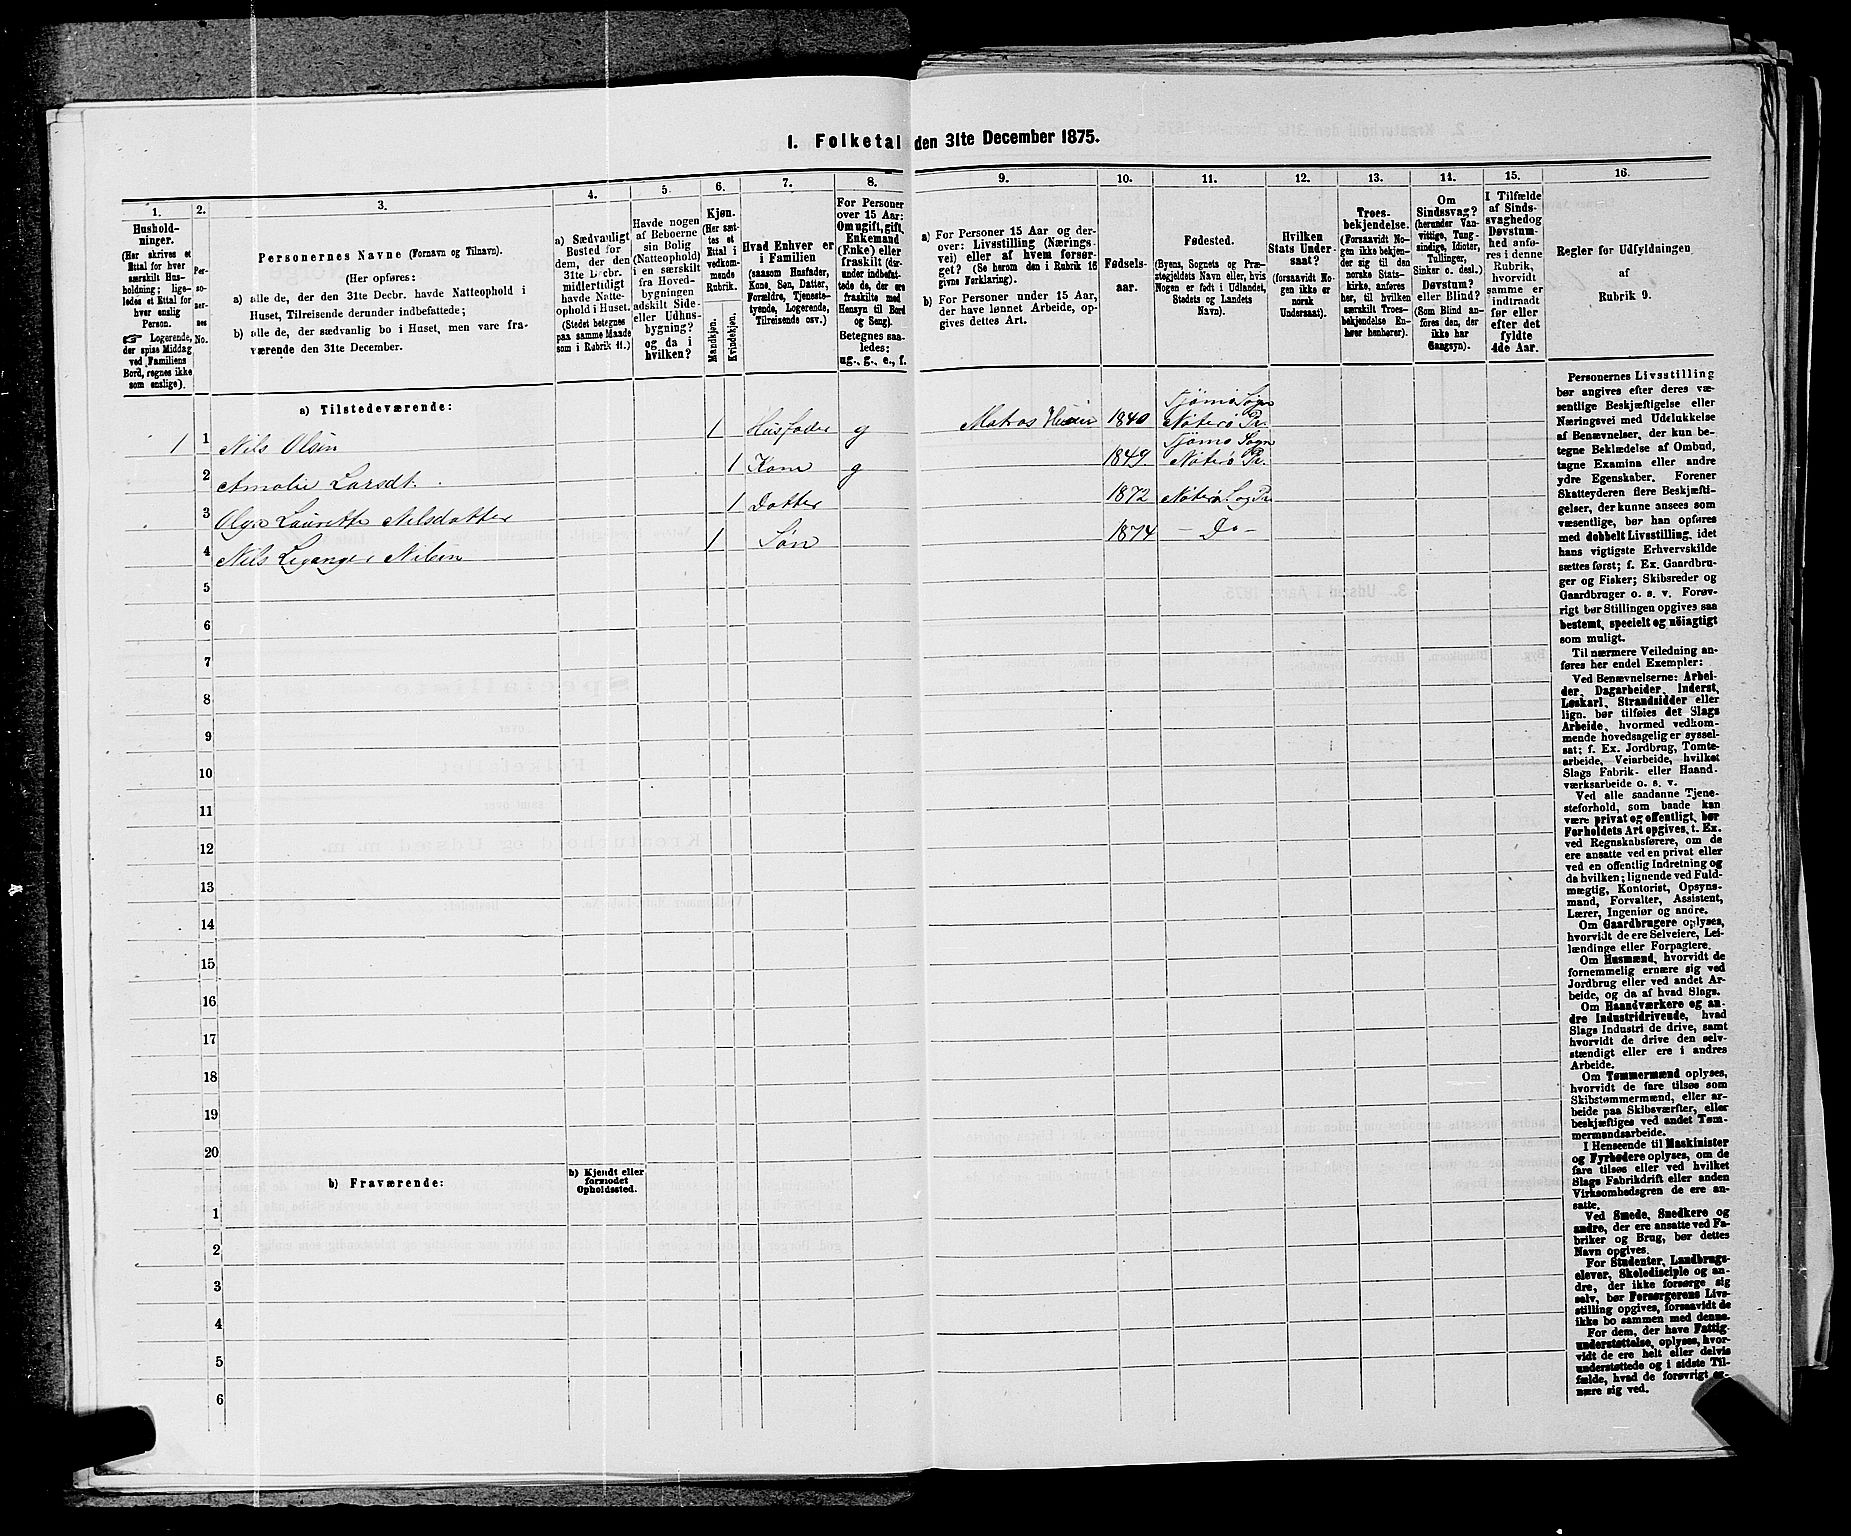 1. Folketal den 31te December 1875.
1. 2. 3. 4. 5. 6. 7. 8. 9. 10. 11. 12. 13. 14. 15. 16.
Hushold-
ninger.
(Her skrives et
Ettal for hver
særskilt Hus-
holdning; lige-
ledes et Ettal for
hver enslig
Person.
Logerende,
der spise Middag
ved Familiens
Bord, regnes ikke
som enslige).
Per-
so-
ner-
nes
No.
Personernes Navne (Fornavn og Tilnavn).
(Her opføres:
a) alle de, der den 31te Decbr. havde Natteophold i
Huset, Tilreisende derunder indbefattede;
b) alle de, der sædvanlig bo i Huset, men vare fra-
værende den 31te December.
a) Sædvanligt
Bosted for
dem, der den
31te Decbr.
midlertidigt
havde Natte-
ophold i Huset.
(Stedet betegnes
paa samme Maade
som i Rubrik 11.)
Havde nogen
af Beboerne
sin Bolig
(Natteophold)
i en særskilt
fra Hoved-
bygningen
adskilt Side-
eller Udhus-
bygning?
og da i
hvilken?
Kjøn.
(Her sæt-
tes et
Ettal i
vedkom-
mende
Rubrik.
Mandkjøn.
Kvindekjøn.
Hvad Enhver er
i Familien
(saasom Husfader,
Kone, Søn, Datter,
Forældre, Tjeneste-
tyende, Logerende,
Tilreisende osv.)
For Personer
over 15 Aar:
Om ugift, gift,
Enkemand
(Enke) eller
fraskilt (der-
under indbefat-
tede de, der ere
fraskilte med
Hensyn til Bord
og Seng).
Betegnes saa-
ledes:
ug., g., e., f.
a) For Personer 15 Aar og der-
over: Livsstilling (Nærings-
vei) eller af hvem forsør-
get? (Se herom den i Rubrik 16
givne Forklaring).
b) For Personer under 15 Aar,
der have lønnet Arbeide, op-
gives dettes Art.
Fødsels-
aar.
Fødested.
(Byens, Sognets og Præ-
stegjeldets Navn eller, hvis
Nogen er født i Udlandet,
Stedets og Landets
Navn).
Hvilken
Stats Under-
saat?
(forsaavidt No-
gen ikke er
norsk
Undersaat).
Troes-
bekjendelse.
(Forsaavidt No-
gen ikke bekjen-
der sig til den
norske Stats-
kirke, anføres
her, til hvilken
særskilt Troes-
bekjendelse En-
hver henhører).
Om
Sindssvag?
(herunder Van-
vittige, Tung-
sindige, Idioter,
Tullinger,
Sinker o. desl.)
Døvstum?
eller Blind?
(Som Blind an-
føres den, der
ikke har
Gangsyn).
I Tilfælde
af Sinds-
svaghed og
Døvstum-
hed anfø-
res i denne
Rubrik,
hvorvidt
samme er
indtraadt
før eller
efter det
fyldte
4de Aar.
Regler for Udfyldningen
af
Rubrik 9.
a) Tilstedeværende:
1 1 Nils Olsen 1 Husfader g Matros 1840 Tjømø Sogn Nøterø Pr.
2 Amalie Larsdt. 1 Kone g 1849. Tjømø Sogn Nøterø Pr.
3 Laurette Nilsdatter 1 Datter 1872 Nøterø S og Pr.
4 Nils Nilsen 1 Søn 1874 — Do —
5
6
7
8
9
10
11
12
13
14
15
16
17
18
19
20
b) Fraværende:
b) Kjendt eller
formodet
Opholdssted.
1
2
3
4
5
6
Personernes Livsstilling
bør angives efter deres væ-
sentlige Beskjæftigelse eller
Næringsvei med Udelukkelse
af Benævnelser, der kun be-
tegne Beklædelse af Ombud,
tagne Examina eller andre
ydre Egenskaber. Forener
Skatteyderen flere Beskjæfti-
gelser, der kunne ansees som
væsentlige, bør han opføres
med dobbelt Livsstilling, idet
hans vigtigste Erhvervskilde
sættes først; f. Ex. Gaardbru-
ger og Fisker; Skibsreder og
Gaardbruger o. s. v. Forøv-
rigt bør Stillingen opgives saa
bestemt, specielt og nøiagtigt
som muligt.
Til nærmere Veiledning an-
føres her endel Exempler:
Ved Benævnelserne: Arbei-
der, Dagarbeider, Inderst,
Løskarl, Strandsidder eller
lign. bør tilføies det Slags
Arbeide, hvormed vedkom-
mende hovedsagelig er syssel-
sat; f. Ex. Jordbrug, Tomte-
arbeide, Veiarbeide, hvilket
Slags Fabrik- eller Haand-
værksarbeide o. s. v.
Ved alle saadanne Tjene-
steforhold, som baade kan
være privat og offentligt, bør
Forholdets Art opgives, t. Ex.
ved Regnskabsførere, om de
ere ansatte ved en privat eller
ved en offentlig Indretning og
da hvilken; lignende ved Fuld-
mægtig, Kontorist, Opsyns-
mand, Forvalter, Assistent,
Lærer, Ingeniør og andre.
Om Gaardbrugere oplyses,
hvorvidt de ere Selveiere, Lei-
lændinge eller Forpagtere.
Om Husmænd, hvorvidt de
fornemmelig ernære sig ved
Jordbrug eller ved andet Ar-
beide, og da af hvad Slags.
Om Haandværkere og an-
dre Industridrivende, hvad
Slags Industri de drive, samt
hvorvidt de drive den selv-
stændigt eller ere i andres
Arbeide.
Om Tømmermænd oplyses,
hvorvidt de fare tilsøs som
Skibstømmermænd, eller ar-
beide paa Skibsværfter, eller
beskjæftiges ved andet Tøm-
mermandsarbeide.
I Henseende til Maskinister
og Fyrbødere oplyses, om de
fare tilsøs eller ved hvilket
Slags Fabrikdrift eller anden
Virksomhedsgren de ere an-
satte.
Ved Smede, Snedkere og
andre, der ere ansatte ved Fa-
briker og Brug, bør dettes
Navn opgives.
For Studenter, Landbrugs-
elever, Skoledisciple og an-
dre, der ikke forsørge sig
selv, bør Forsørgerens Livs-
stilling opgives, forsaavidt de
ikke bo sammen med denne.
For dem, der have Fattig-
understøttelse, oplyses, hvor-
vidt de ere helt eller delvis
understøttede og i sidste Til-
fælde, hvad de forøvrigt er-
nære sig ved.